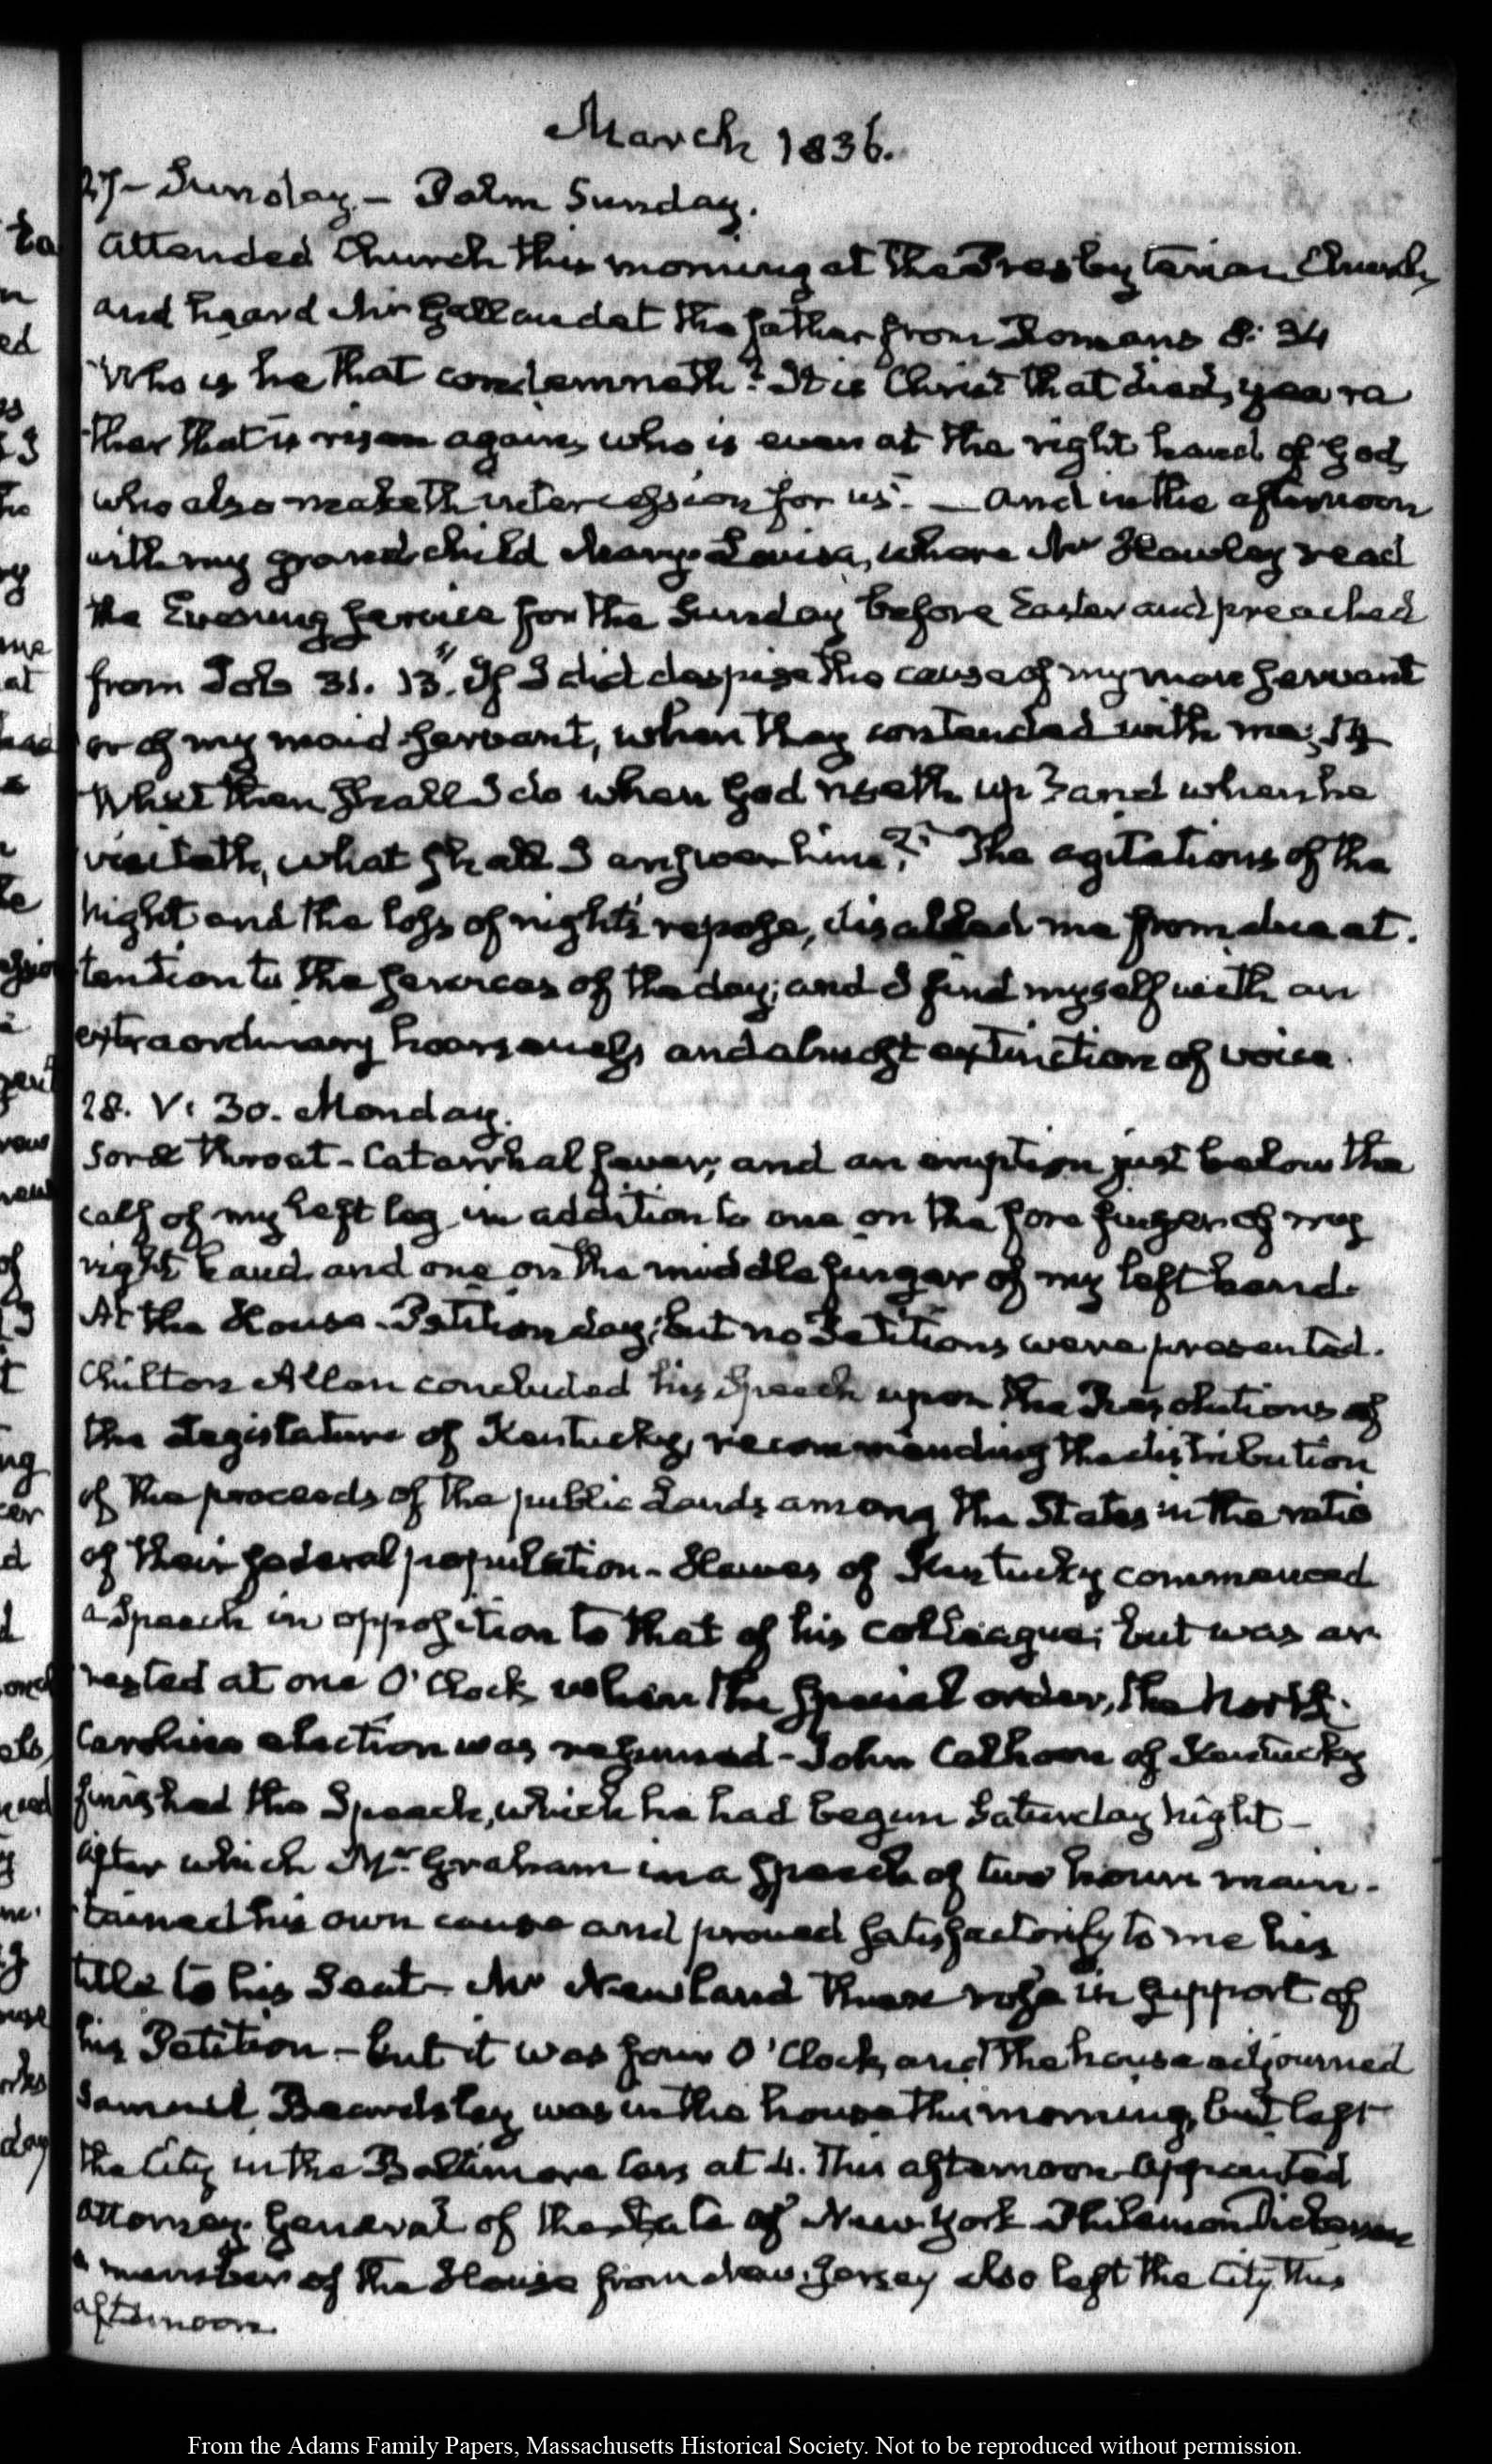 March 1836.
27 - Sunday - Palm Sunday.
Attended Church this morning at the Presbyterian Church,
and heard Mr Gallaudet the father from Romans 8: 34
"Who is he that condemneth? It is Christ that died, yea ra
ther that is risen again, who is even at the right hand of God,
who also maketh intercession for us". — And in the afternoon
with my grandchild Mary-Louisa, where Mr Hawley read
the Evening service for the Sunday before Easter and preached
from Job 31. 13. "If I did despise the cause of my man servant
or of my maid-servant, when they contended with me; 14
What then shall I do when God riseth up? and when he
visiteth, what shall I answer him?" The agitations of the
night and the loss of night's repose, disabled me from due at-
tention to the services of the day; and I find myself with an
extraordinary hoarseness and almost extinction of voice.
28. V: 30. Monday.
Sore throat - Catarrhal fever, and an eruption just below the
calf of my left leg in addition to one on the fore finger of my
right hand and one on the middle finger of my left hand.
At the House - Petition day; but no Petitions were presented.
Chilton Allan concluded his Speech upon the Resolutions of
the Legislature of Kentucky, recommending the distribution
of the proceeds of the public Lands among the States in the ratio
of their federal population - Hawes of Kentucky commenced
a Speech in opposition to that of his colleague; but was ar-
rested at one O'Clock when the special order, the North-
Carolina election was resumed - John Calhoon of Kentucky
finished the Speech, which he had begun Saturday night -
after which Mr Graham in a speech of two hours main-
tained his own cause and proved satisfactorily to me his
title to his Seat - Mr Newland then rose in support of
his Petition - but it was four O'Clock, and the house adjourned
Samuel Beardsley was in the house this morning, but left
the City in the Baltimore Cars at 4. this afternoon appointed
Attorney-General of the State of New-York - Philemon Dickerson
a member of the House from New-Jersey also left the City this
afternoon.
From the Adams Family Papers, Massachusetts Historical Society. Not to be reproduced without permission.